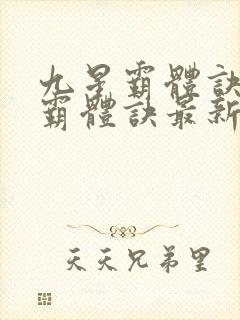 九星霸體訣
霸體訣最新
天天兄弟里